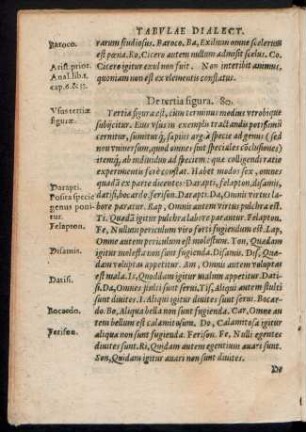 TABVLAE DIALECT.
Baroco.
rarum studiosus. Baroco. Ba, Exilium omne scelerum
est pœna. Ro, Cicero autem nullum admisit scelus. Co.
Arist. prior.
Cicero igitur exul non fuit. Non interibit animus,
Anal. lib. 1.
quoniam non est ex elementis constatus.
cap. 6. &
De tertia figura. 80.
Vsus tertiæ
figuræ
Tertia figura est, cùm terminus medius vtrobique
subijcitur. Eius vsus in exemplo tractandi potissimùm
cernitur, sumiturq́, sæpius argu à specie ad genus (sed
non vniuersum, quod omnes sint speciales cōclusiones)
itemq́, ab indiuiduo ad speciem: quæ colligendi ratio
experimentis ferè constat. Habet modos sex, omnes
Darapti.
quadā ex parte docentes: Darapti, felapton, disamis,
Posita specie
datisi, bocardo, ferison. Darapti. Da, Omnis virtus la-
genus poni
tur.
bore paratur. Rap, Omnis autem virtus pulchra est.
Felapton.
Ti, Quædā igitur pulchra labore parantur. Felapton.
Fe, Nullum periculum viro forti fugiendum est. Lap,
Omne autem periculum est molestum. Ton, Quædam
Disamis.
igitur molesta non sunt fugienda. Disamis. Dis, Quæ-
dam voluptas appetitur. Sam, Omnis autem voluptas
est mala. Is, Quoddam igitur malum appetitur. Dati-
Datisi.
si. Da, Omnes diuites sunt facti. Tis, Aliqui autem stulti
sunt diuites. I. Aliqui igitur stulti sunt diuites. Bocar-
Bocardo.
do. Bo, Aliqua bella non sunt fugienda. Car, Omne au
tem bellum est calamitosum. Do, Calamitosa igitur
Ferison.
aliqua non sunt fugienda. Ferison. Fe. Nulli egentes
diuites sunt. Ri, Quidam autem egentium auari sunt.
Son, Quidam igitur auari non sunt diuites.
De